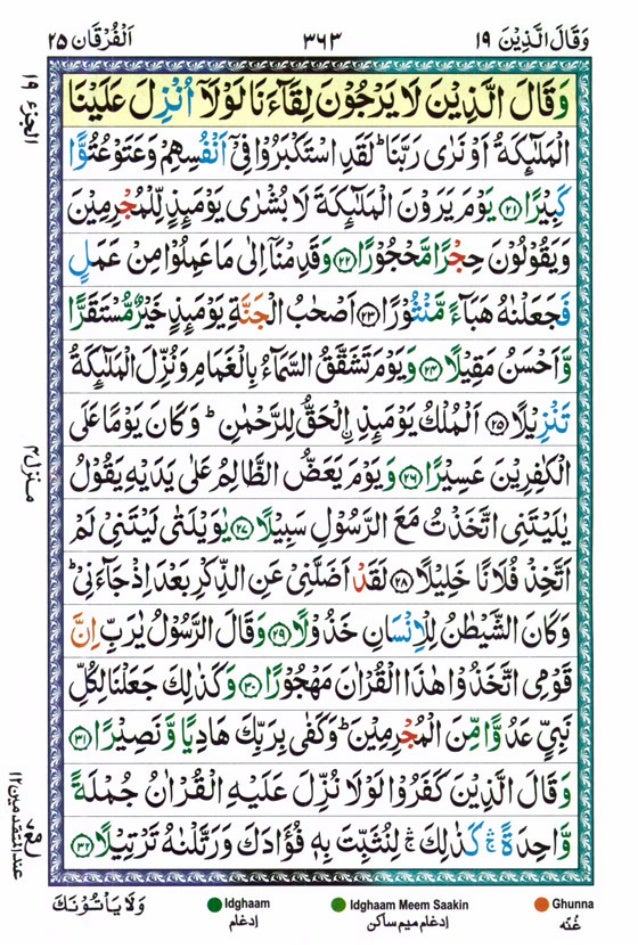 وَقَالَ الَّذِيْنَ ١٩
٣٦٣
اَلْفُرْقَان ٢٥
وَقَالَ الَّذِيْنَ لَا يَرْجُوْنَ لِقَآءَنَا لَوْلَآ اُنْزِلَ عَلَيْنَا
الْمَلٰٓئِكَةُ اَوْ نَرٰى رَبَّنَا ؕ لَقَدِ اسْتَكْبَرُوْا فِيْۤ اَنْفُسِهِمْ وَعَتَوْ عُتُوًّا
كَبِيْرًا ﴿٢١﴾ يَوْمَ يَرَوْنَ الْمَلٰٓئِكَةَ لَا بُشْرٰى يَوْمَئِذٍ لِّلْمُجْرِمِيْنَ
وَيَقُوْلُوْنَ حِجْرًا مَّحْجُوْرًا ﴿٢٢﴾ وَقَدِمْنَاۤ اِلٰى مَا عَمِلُوْا مِنْ عَمَلٍ
فَجَعَلْنٰهُ هَبَآءً مَّنْثُوْرًا ﴿٢٣﴾ اَصْحٰبُ الْجَنَّةِ يَوْمَئِذٍ خَيْرٌ مُّسْتَقَرًّا
وَّاَحْسَنُ مَقِيْلًا ﴿٢٤﴾ وَيَوْمَ تَشَقَّقُ السَّمَآءُ بِالْغَمَامِ وَنُزِّلَ الْمَلٰٓئِكَةُ
تَنْزِيْلًا ﴿٢٥﴾ اَلْمُلْكُ يَوْمَئِذِ اۨلْحَقُّ لِلرَّحْمٰنِ ؕ وَكَانَ يَوْمًا عَلَى
الْكٰفِرِيْنَ عَسِيْرًا ﴿٢٦﴾ وَيَوْمَ يَعَضُّ الظَّالِمُ عَلٰى يَدَيْهِ يَقُوْلُ
يٰلَيْتَنِى اتَّخَذْتُ مَعَ الرَّسُوْلِ سَبِيْلًا ﴿٢٧﴾ يٰوَيْلَتٰى لَيْتَنِيْ لَمْ
اَتَّخِذْ فُلَانًا خَلِيْلًا ﴿٢٨﴾ لَقَدْ اَضَلَّنِيْ عَنِ الذِّكْرِ بَعْدَ اِذْ جَآءَنِيْ ؕ
وَكَانَ الشَّيْطٰنُ لِلْاِنْسَانِ خَذُوْلًا ﴿٢٩﴾ وَقَالَ الرَّسُوْلُ يٰرَبِّ اِنَّ
قَوْمِى اتَّخَذُوْا هٰذَا الْقُرْاٰنَ مَهْجُوْرًا ﴿٣٠﴾ وَكَذٰلِكَ جَعَلْنَا لِكُلِّ
نَبِيٍّ عَدُوًّا مِّنَ الْمُجْرِمِيْنَ ؕ وَكَفٰى بِرَبِّكَ هَادِيًا وَّنَصِيْرًا ﴿٣١﴾
وَقَالَ الَّذِيْنَ كَفَرُوْا لَوْلَا نُزِّلَ عَلَيْهِ الْقُرْاٰنُ جُمْلَةً
وَّاحِدَةً ۛۚ كَذٰلِكَ ۛۚ لِنُثَبِّتَ بِهٖ فُؤَادَكَ وَرَتَّلْنٰهُ تَرْتِيْلًا ﴿٣٢﴾
الجزء ١٩
منزل ٤
عند المتقدمين ١٢
وَلَا يَاْتُوْنَكَ
Idghaam
ادغام
Idghaam Meem Saakin
ادغام میم ساکن
Ghunna
غنّہ